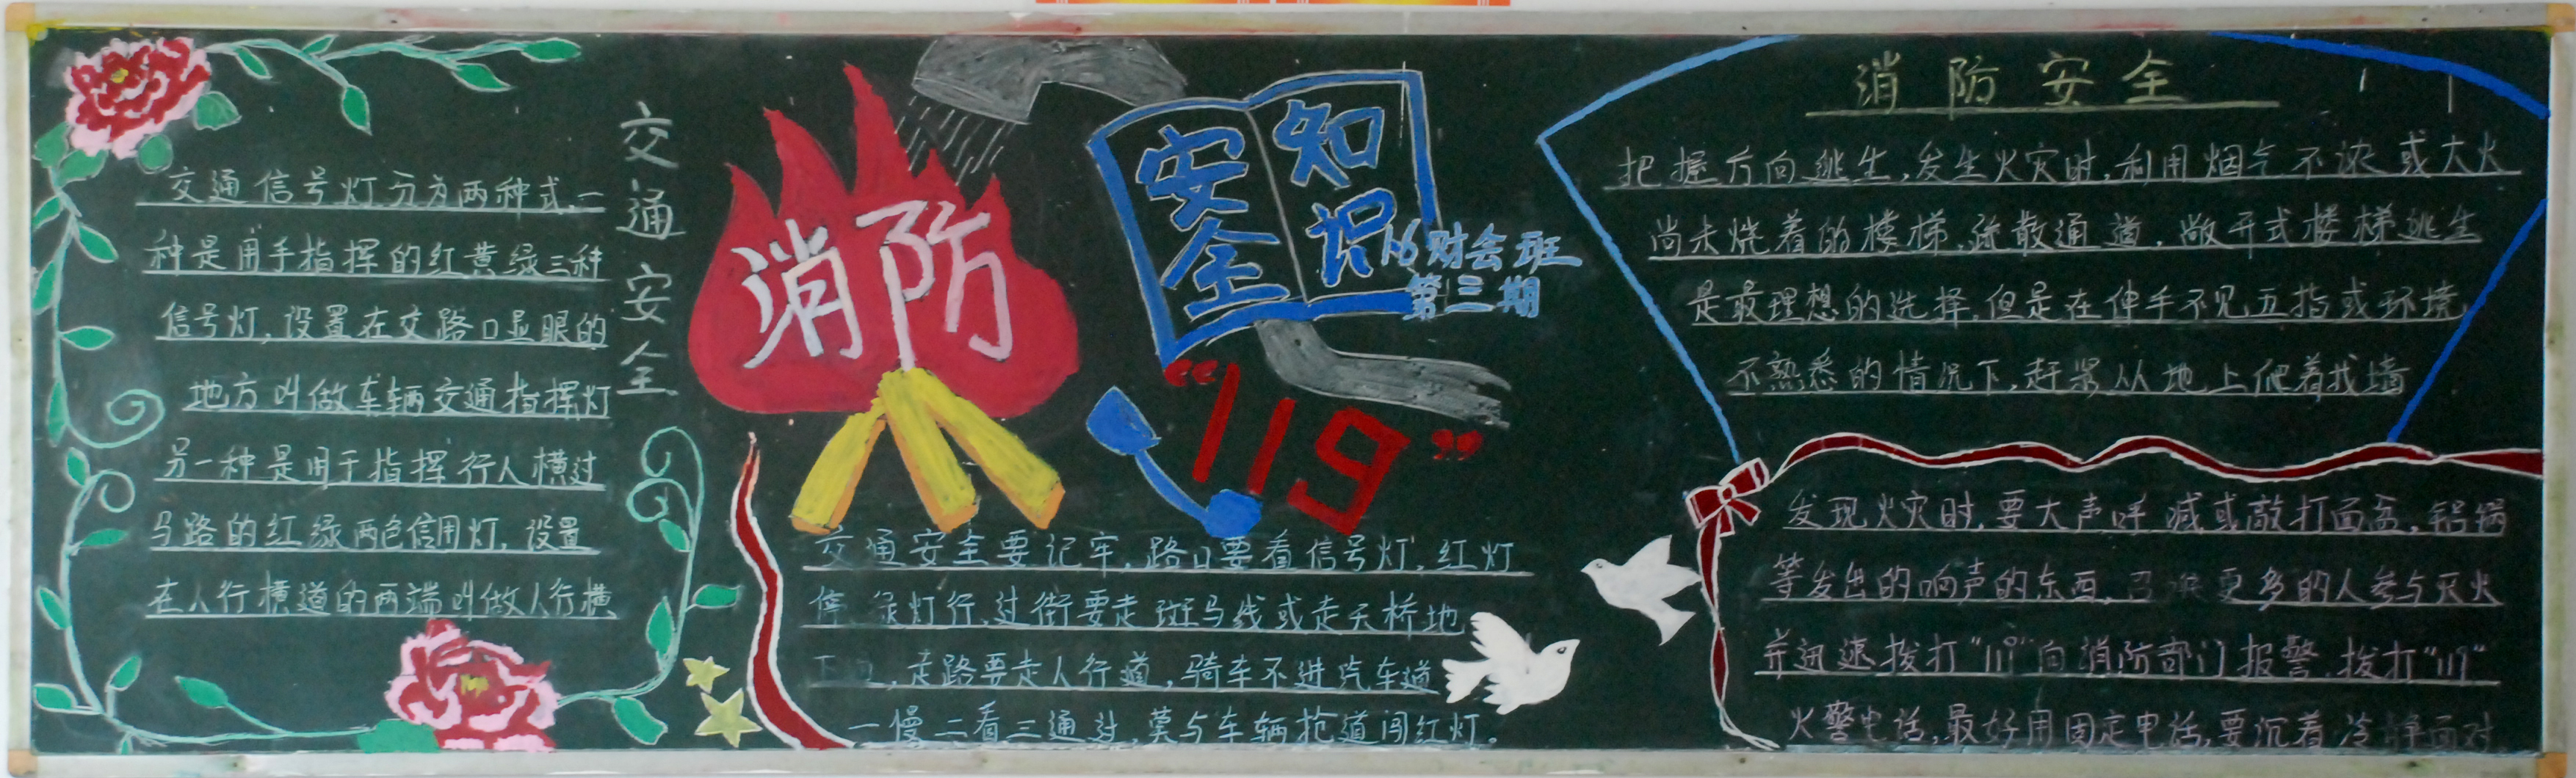 交通安全
交通信号灯分为两种式,一
种是用手指挥的红黄绿三种
信号灯,设置在交路口显眼的
地方叫做车辆交通指挥灯
另一种是用于指挥行人横过
马路的红绿两色信用灯,设置
在人行横道的两端叫做人行横
消防
安全
知识
16财会班
第三期
“119”
交通安全要记牢,路口要看信号灯,红灯
停 绿灯行,过街要走斑马线或走天桥地
下 ,走路要走人行道,骑车不进汽车道
一慢二看三通过,莫与车辆抢道闯红灯。
消防安全
把握方向逃生,发生火灾时,利用烟气不浓或大火
尚未烧着的楼梯,疏散通道,敞开式楼梯逃生
是最理想的选择,但是在伸手不见五指或环境
不熟悉的情况下,赶紧从地上爬着找墙
发现火灾时,要大声呼减或敲打面盆,铝锅
等发出的响声的东西,召 更多的人参与灭火
并迅速拨打“119”向消防部门报警,拨打“119”
火警电话,最好用固定电话,要沉着冷静面对